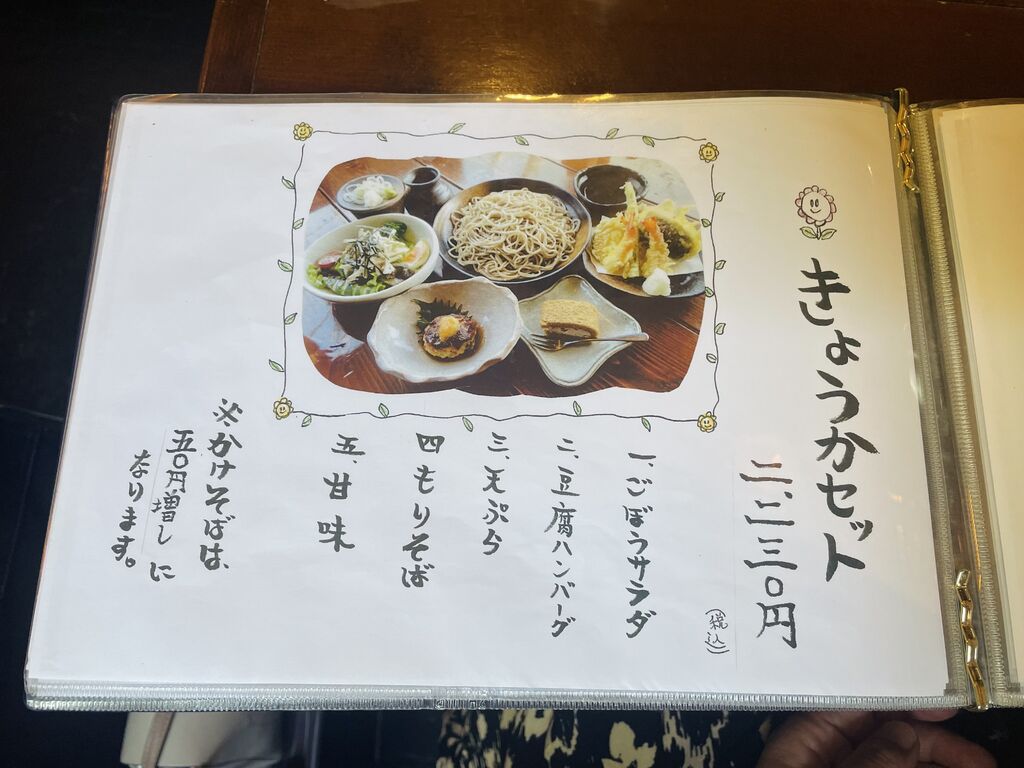 きょうかセット
二、二三〇円
(税込)
一、ごぼうサラダ
二、豆腐ハンバーグ
三、天ぷら
四もりそば
五、甘味
※かけそばは、
五〇円増しに
なります。